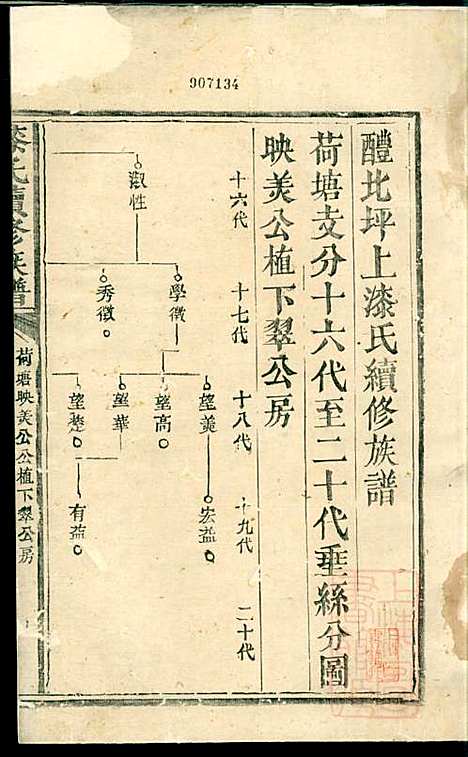 907134
醴北坪上漆氏續修族譜
荷塘支分十六代至二十代垂絲分圖
映美公植下翠公房
十六代
十七代
十八代
十九代
二十代
淑性
學徵
秀徵
望美
望高
望華
望楚
宏益
有益
漆氏續修族譜
荷塘映美公公植下翠公房